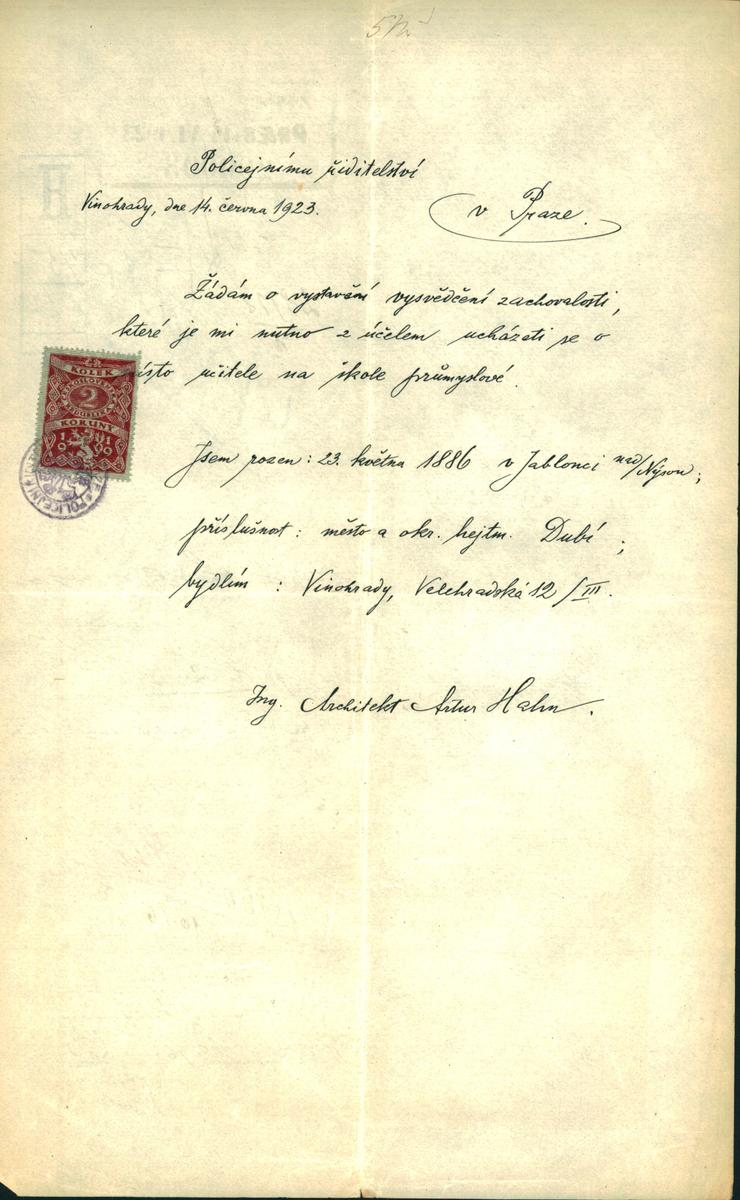 Policejnímu řiditelství
Vinohrady, dne 14. června 1923.
v Praze.
Žádám o vystavění vysvědčení zachovalosti,
které je mi nutno z účelem ucházeti se o
ísto učitele na škole průmyslové.
KOLEK
2
KORUNY
1919
POLICEJNÍ
Jsem rozen: 23. května 1886 v Jablonci nad/Nýsou;
příslušnost: město a okr. hejtm. Dubí;
bydlím: Vinohrady, Velehradská 12/III.
Ing. Architekt Artur Hahn.